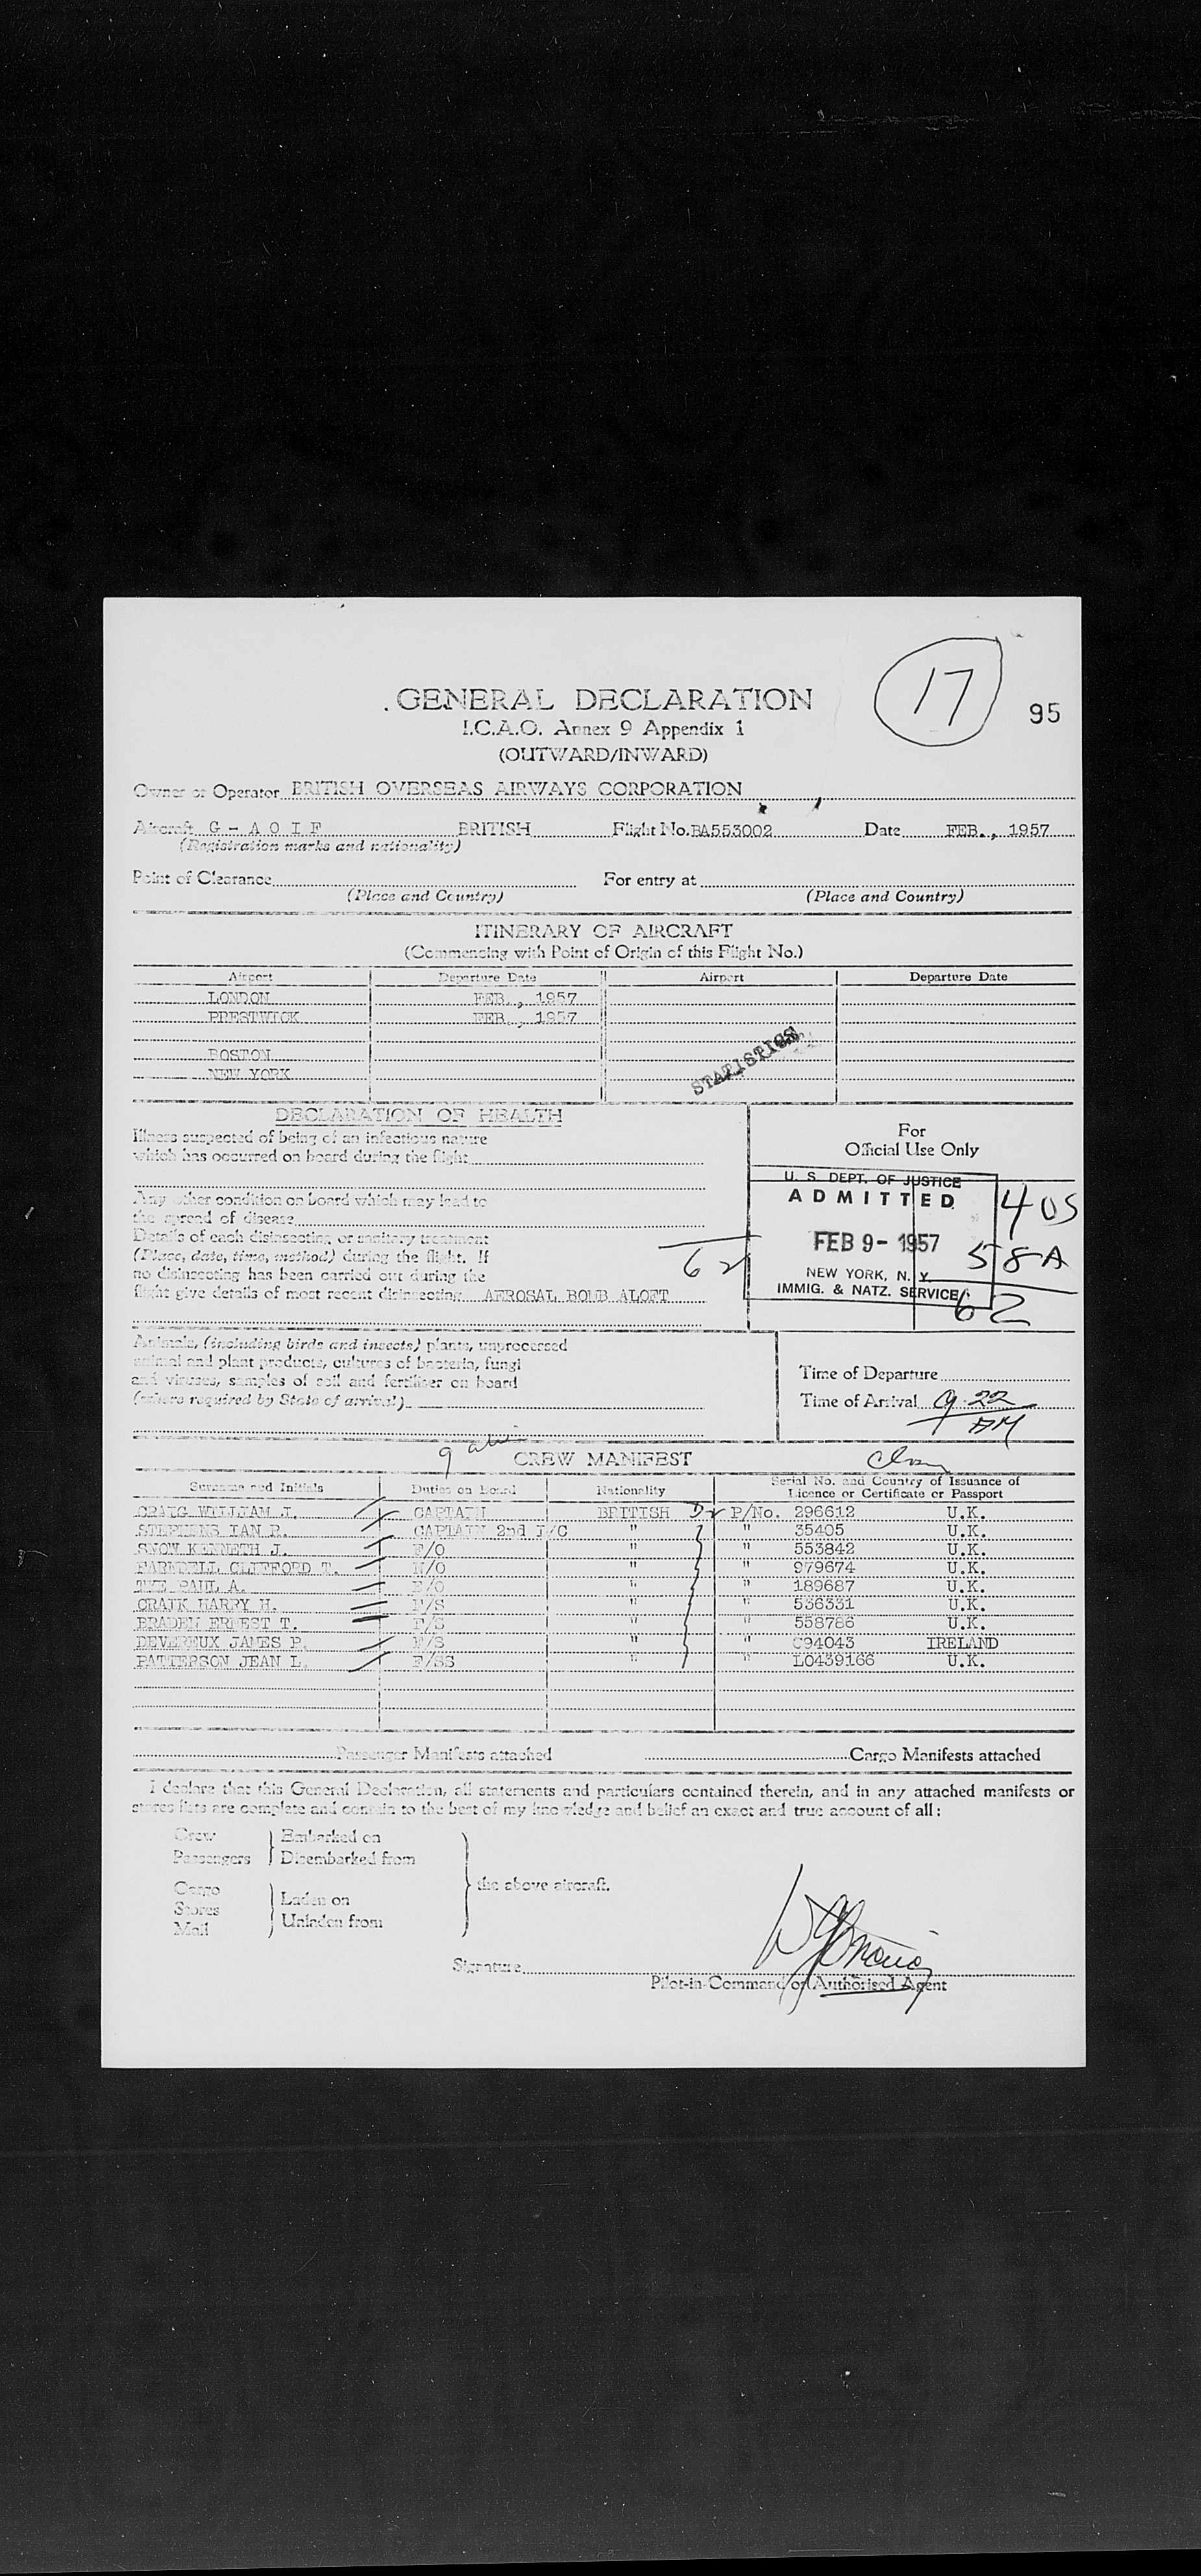 17
95
GENERAL DECLARATION
I.C.A.O. Annex 9 Appendix 1
(OUTWARD/INWARD)
Owner or Operator BRITISH OVERSEAS AIRWAYS CORPORATION
Aircraft G - A O I F BRITISH Flight No. BA553002 Date FEB., 1957
(Registration marks and nationality)
Point of Clearance For entry at
(Place and Country) (Place and Country)
ITINERARY OF AIRCRAFT
(Commencing with Point of Origin of this Flight No.)
Airport Departure Date Airport Departure Date
LONDON FEB., 1957
PRESTWICK FEB , 1957
BOSTON
NEW YORK
STATISTICS
DECLARATION OF HEALTH
Illness suspected of being of an infectious nature
which has occurred on board during the flight
Any other condition on board which may lead to
the spread of disease
Details of each disinsecting or sanitary treatment
(Place, date, time, method) during the flight. If
no disinsecting has been carried out during the
flight give details of most recent disinsecting AEROSAL BOMB ALOFT
62
For
Official Use Only
U. S. DEPT. OF JUSTICE
ADMITTED
FEB 9- 1957
NEW YORK, N. Y.
IMMIG. & NATZ. SERVICE
4 US
58A
62
Animals, (including birds and insects) plants, unprocessed
animal and plant products, cultures of bacteria, fungi
and viruses, samples of soil and fertiliser on board
(where required by State of arrival)
Time of Departure
Time of Arrival 9.22
AM
CREW MANIFEST
Surname and Initials Duties on Board Nationality Serial No. and Country of Issuance of
Licence or Certificate or Passport
CRAIG WILLIAM J. CAPTAIN BRITISH P/No. 296612 U.K.
STEPHENS IAN R. CAPTAIN 2nd I/C " " 35405 U.K.
SNOW KENNETH J. F/O " " 553842 U.K.
CLIFFORD T. N/O " " 979674 U.K.
PAUL A. E/O " " 189687 U.K.
CRAIK HARRY H. F/S " " 536331 U.K.
BRADEN ERNEST T. F/S " " 558786 U.K.
DEVEREUX JAMES P. F/S " " C94043 IRELAND
PATTERSON JEAN L. F/SS " " L0439166 U.K.
Passenger Manifests attached Cargo Manifests attached
I declare that this General Declaration, all statements and particulars contained therein, and in any attached manifests or
stores lists are complete and contain to the best of my knowledge and belief an exact and true account of all:
Crew Embarked on
Passengers Disembarked from
the above aircraft.
Cargo Laden on
Stores
Mail Unladen from
Signature
Pilot-in-Command or Authorised Agent